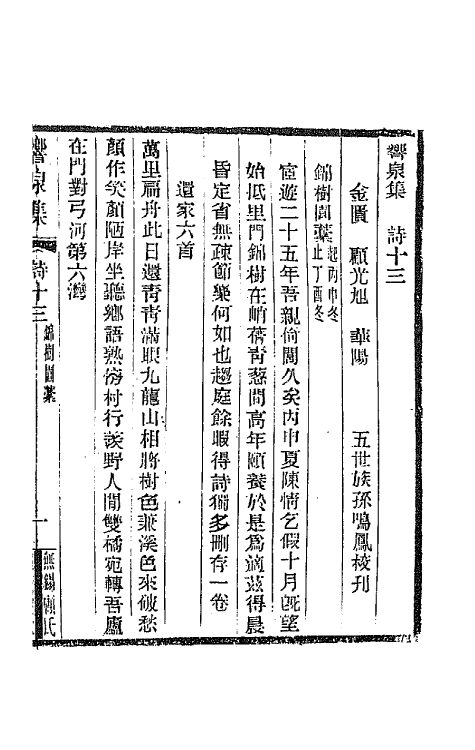 響泉集　詩十三
金匱　顧光旭　華陽　五世族孫鳴鳳校刊
錦樹園藁起丙申冬止丁酉冬
宦遊二十五年吾親倚閭久矣丙申夏陳情乞假十月旣望
始抵里門錦樹在峭蒨青葱間高年頤養於是爲適茲得晨
昏定省無疎節樂何如也趨庭餘暇得詩獨多刪存一卷
還家六首
萬里扁舟此日還青青滿眼九龍山相將樹色兼溪色來破愁
顏作笑顏陋岸坐聽鄉語熟傍村行羨野人閒雙橋宛轉吾廬
在門對弓河第六灣
響泉集　詩十三　錦樹園藁　一　無錫顧氏